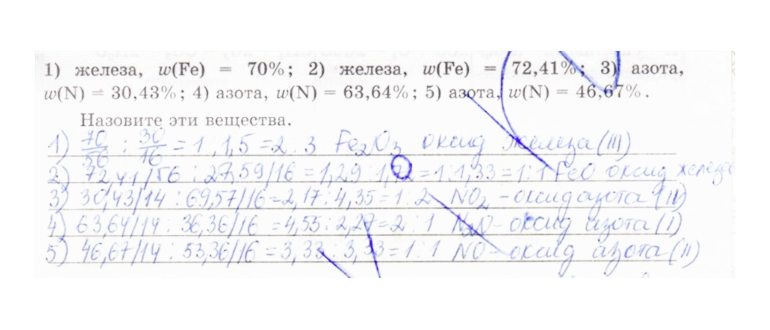 1) железа, w(Fe) = 70%; 2) железа, w(Fe) = 72,41%; 3) азота,
w(N) = 30,43%; 4) азота, w(N) = 63,64%; 5) азота, w(N) = 46,67%.
Назовите эти вещества.
1) 70/56 : 30/16 = 1 : 1,5 = 2 : 3 Fe₂O₃ оксид железа (III)
2) 72,41/56 : 27,59/16 = 1,29 : 1,72 = 1:1,33 = 1:1 FeO оксид железа
3) 30,43/14 : 69,57/16 = 2,17 : 4,35 = 1:2 NO₂ - оксид азота (IV)
4) 63,64/14 : 36,36/16 = 4,55 : 2,27 = 2:1 N₂O - оксид азота (I)
5) 46,67/14 : 53,36/16 = 3,33 : 3,33 = 1:1 NO - оксид азота (II)